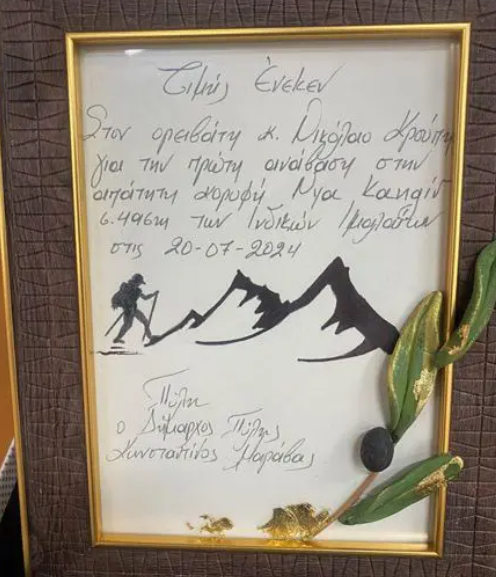 Τιμής Ένεκεν
Στον ορειβάτη κ. Νικόλαο Κρούπη
για την πρώτη ανάβαση στην
απάτητη κορυφή Νγα Κανγιν
6.496m των Ινδικών Ιμαλαΐων
στις 20-07-2024
Πύλη
ο Δήμαρχος Πύλης
Κωνσταντίνος Μαράβας